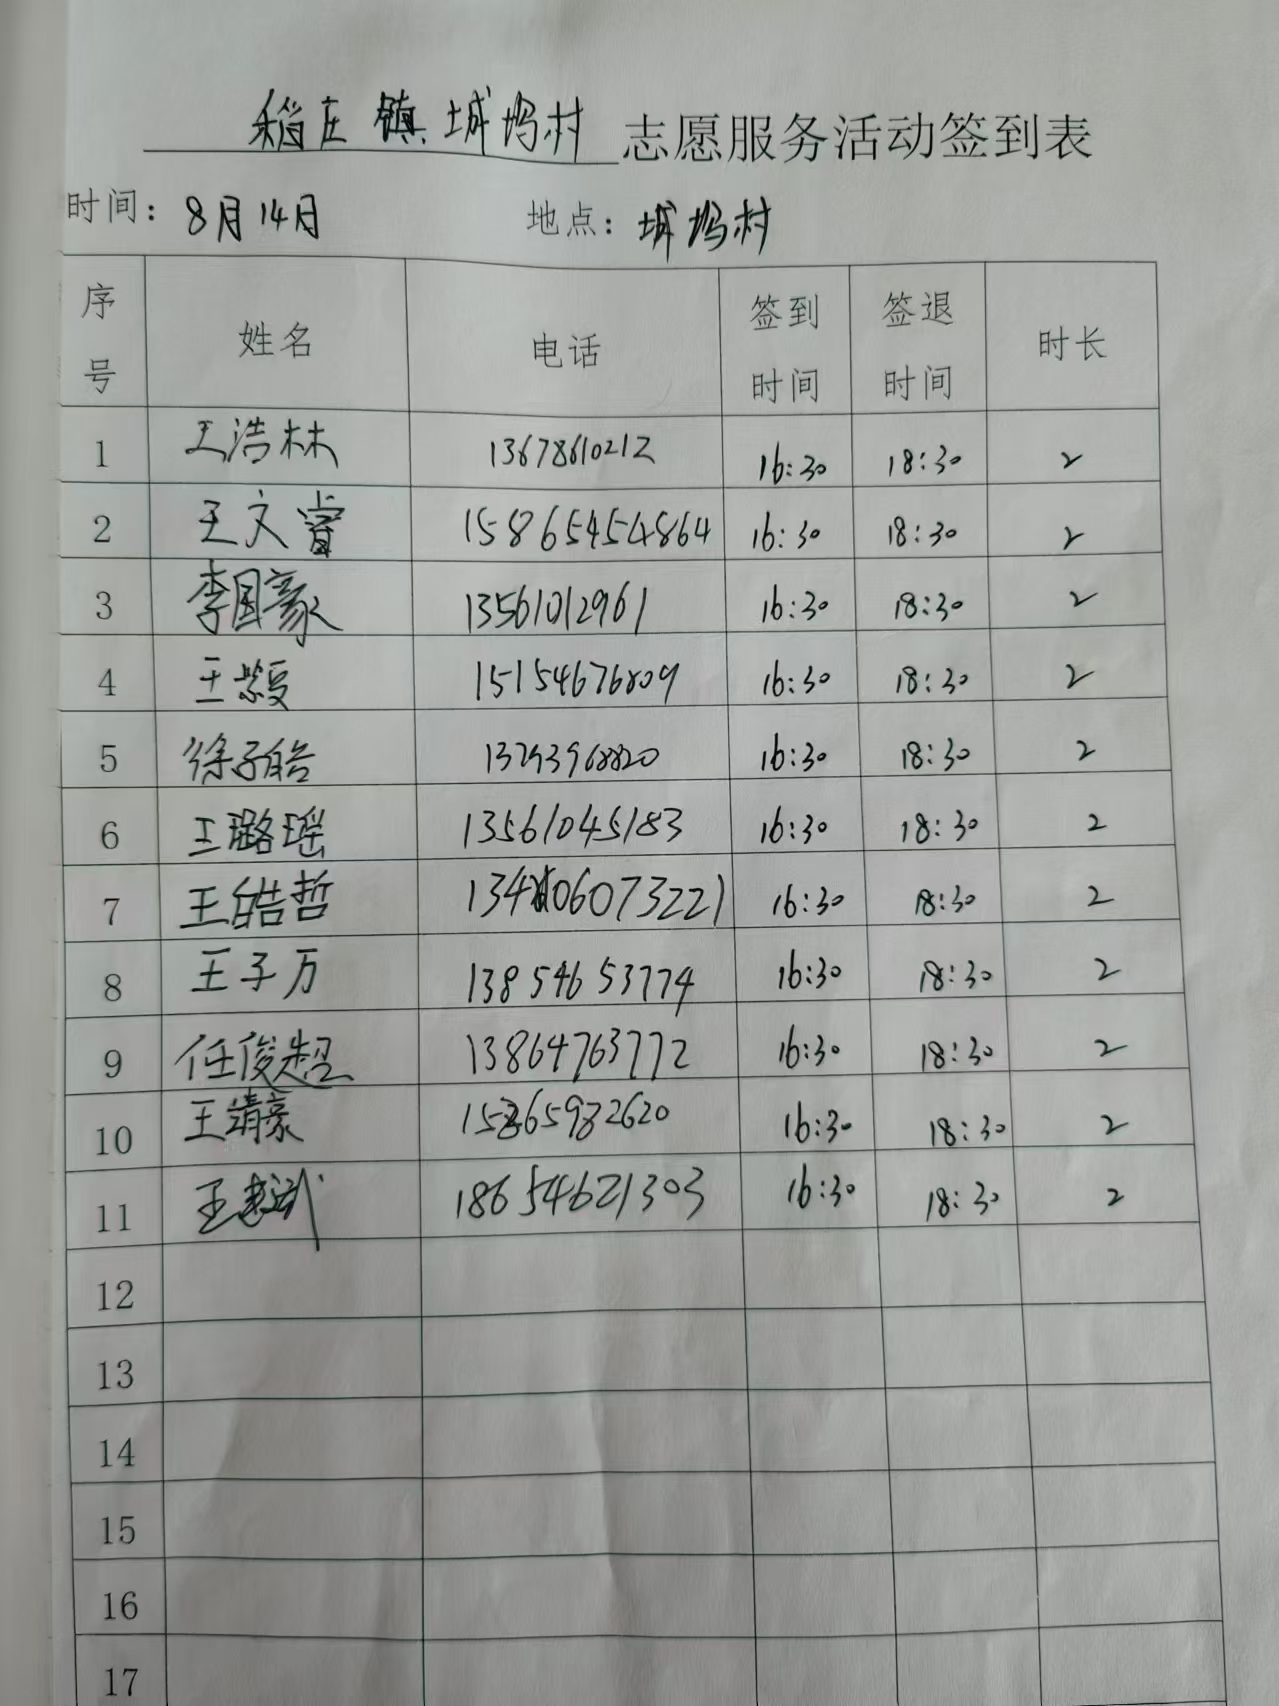 稻庄镇城坞村志愿服务活动签到表
时间：8月14日 地点：城坞村
序号 姓名 电话 签到时间 签退时间 时长
1 王浩林 13678610212 16:30 18:30 2
2 王文睿 15865454864 16:30 18:30 2
3 李国豪 13561012961 16:30 18:30 2
4 王 15154676809 16:30 18:30 2
5 徐子皓 16:30 18:30 2
6 王璐瑶 13561045183 16:30 18:30 2
7 王皓哲 13406073221 16:30 18:30 2
8 王子万 13854653774 16:30 18:30 2
9 任俊超 13864763772 16:30 18:30 2
10 王靖豪 15865982620 16:30 18:30 2
11 王 18654621303 16:30 18:30 2
12
13
14
15
16
17